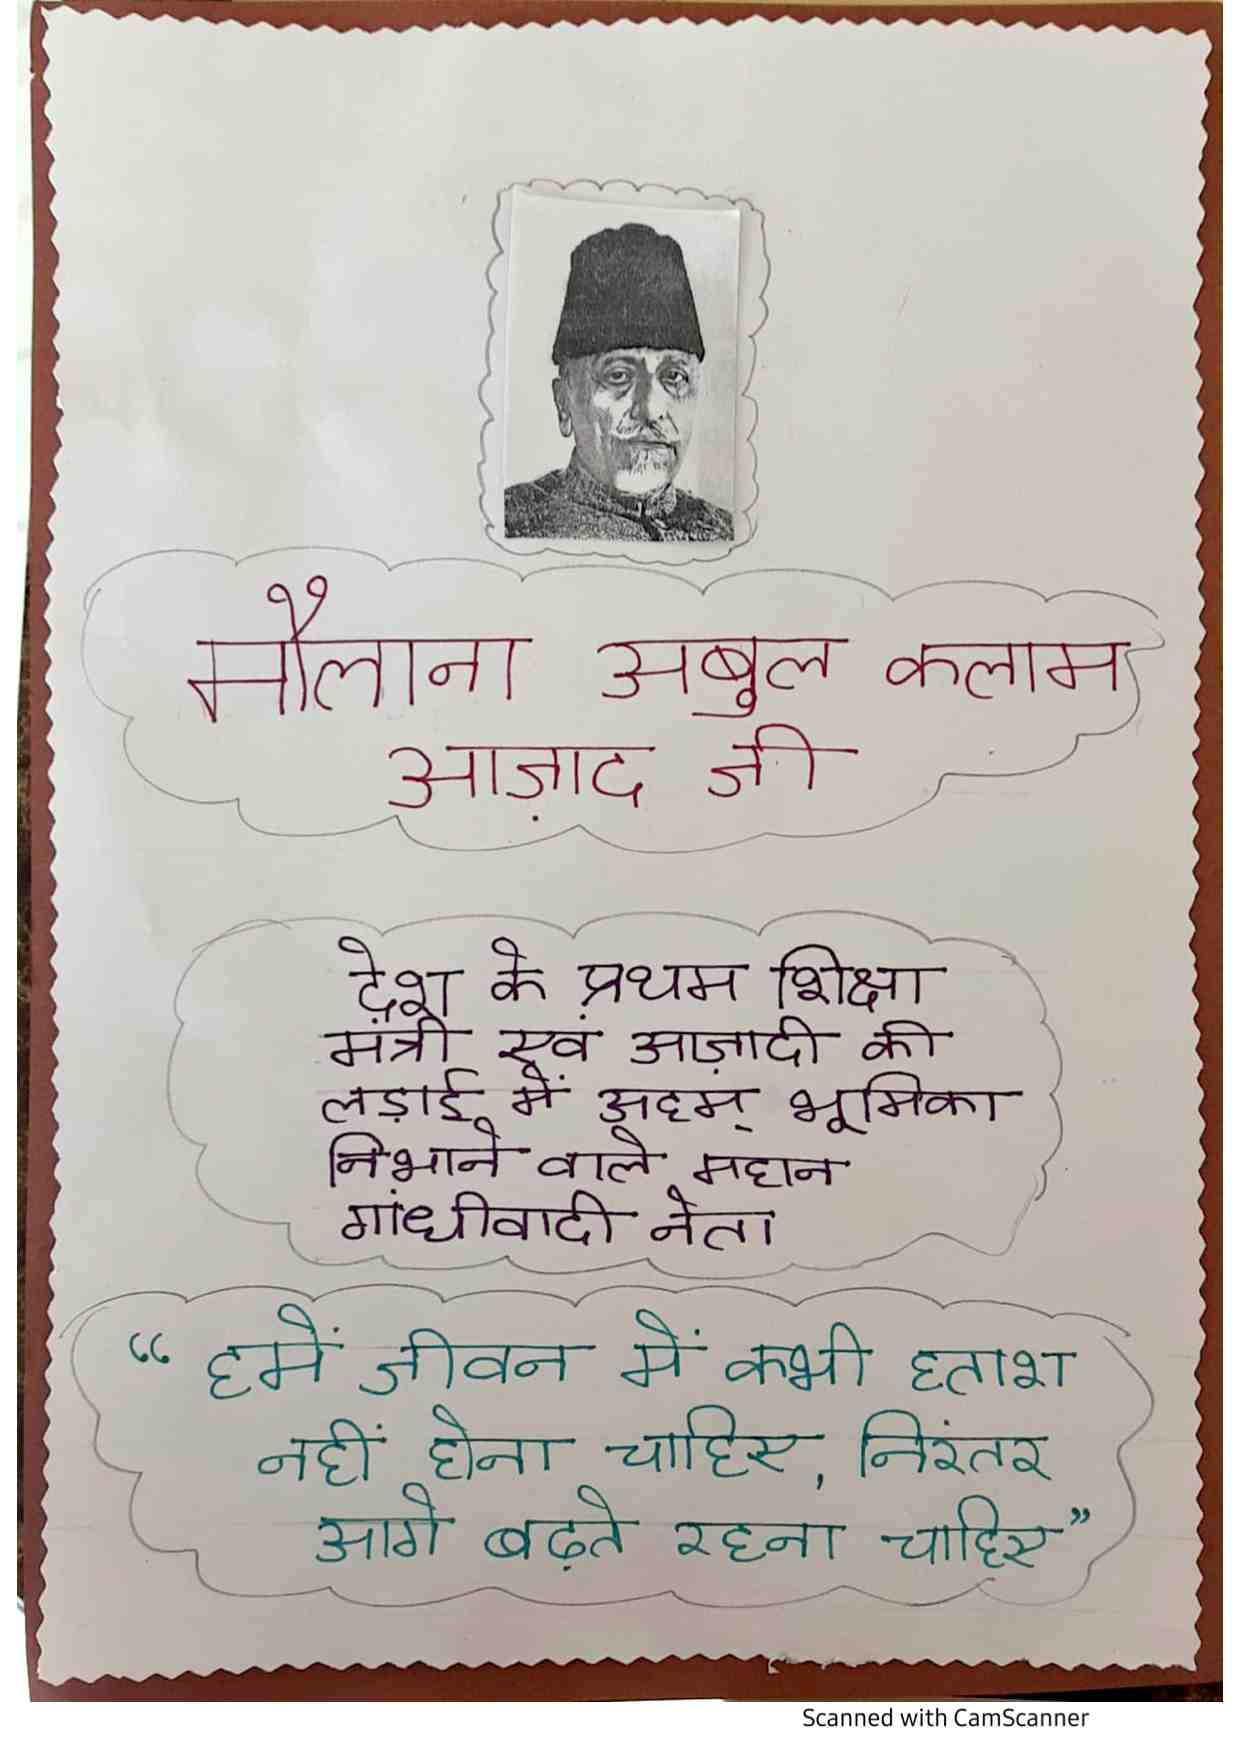 मौलाना अबुल कलाम
आज़ाद जी
देश के प्रथम शिक्षा
मंत्री एवं आज़ादी की
लड़ाई में अहम् भूमिका
निभाने वाले महान
गांधीवादी नेता
“हमें जीवन में कभी हताश
नहीं होना चाहिए, निरंतर
आगे बढ़ते रहना चाहिए”
Scanned with CamScanner